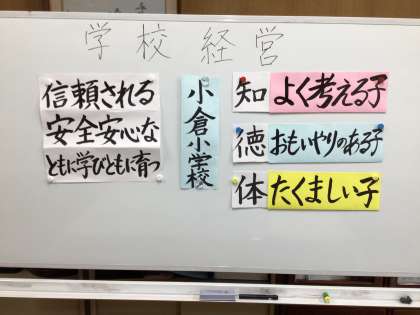 学校経営
信頼される
安全安心な
ともに学びともに育つ
小倉小学校
知 よく考える子
徳 おもいやりのある子
体 たくましい子